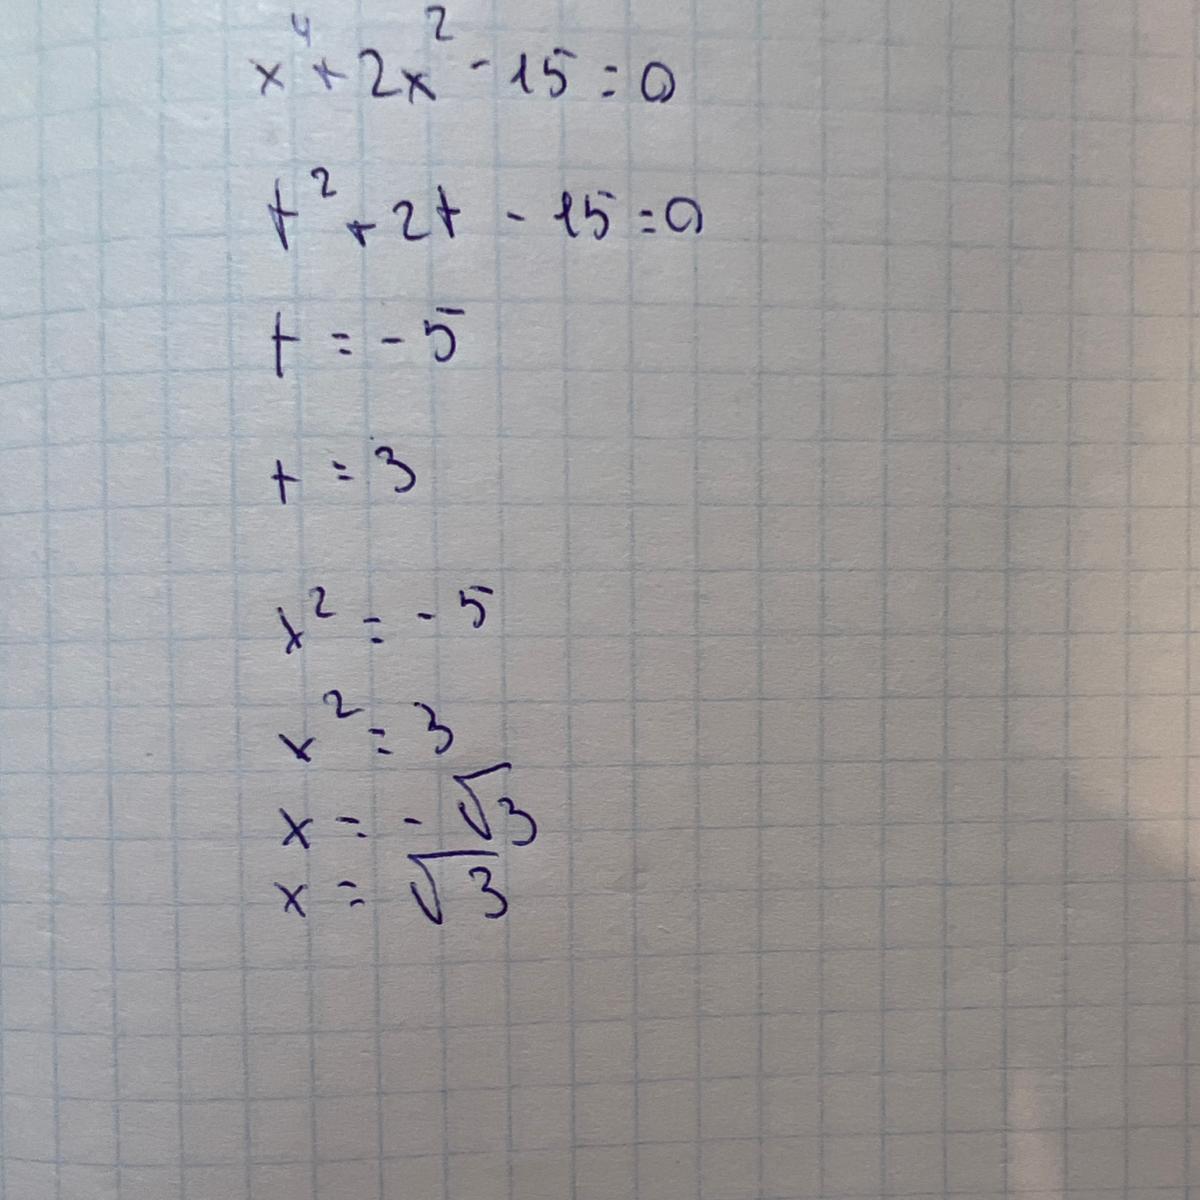 x⁴ + 2x² - 15 = 0
t² + 2t - 15 = 0
t = - 5
t = 3
x² = - 5
x² = 3
x = - √3
x = √3